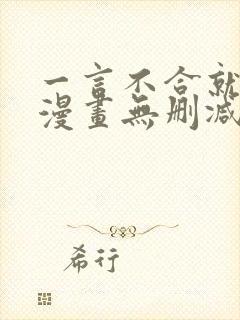 一言不合就
漫畫無刪減
希行